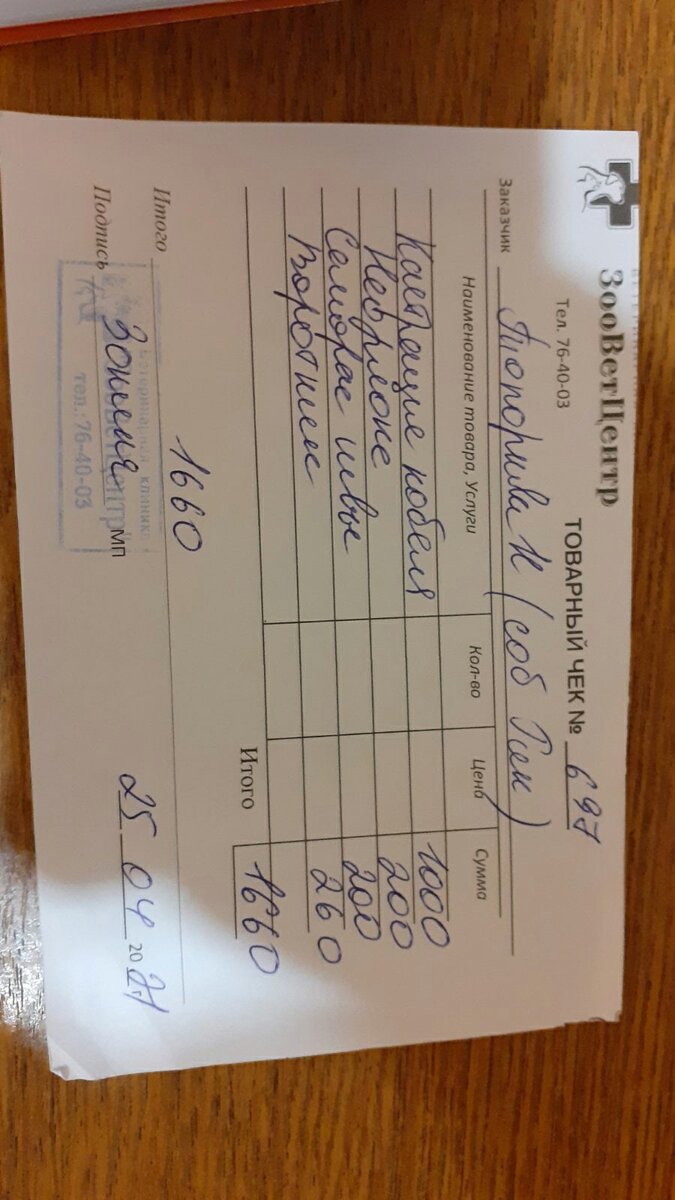 ЗооВетЦентр
Тел. 76-40-03
ТОВАРНЫЙ ЧЕК № 697
Заказчик (соб Рик)
Наименование товара, Услуги Кол-во Цена Сумма
Кастрация кобеля 1000
200
швы 200
Воротник 260
Итого 1660
Итого 1660
Подпись МП 25 04 2021
Ветеринарная клиника
ЗооВетЦентр
тел.: 76-40-03